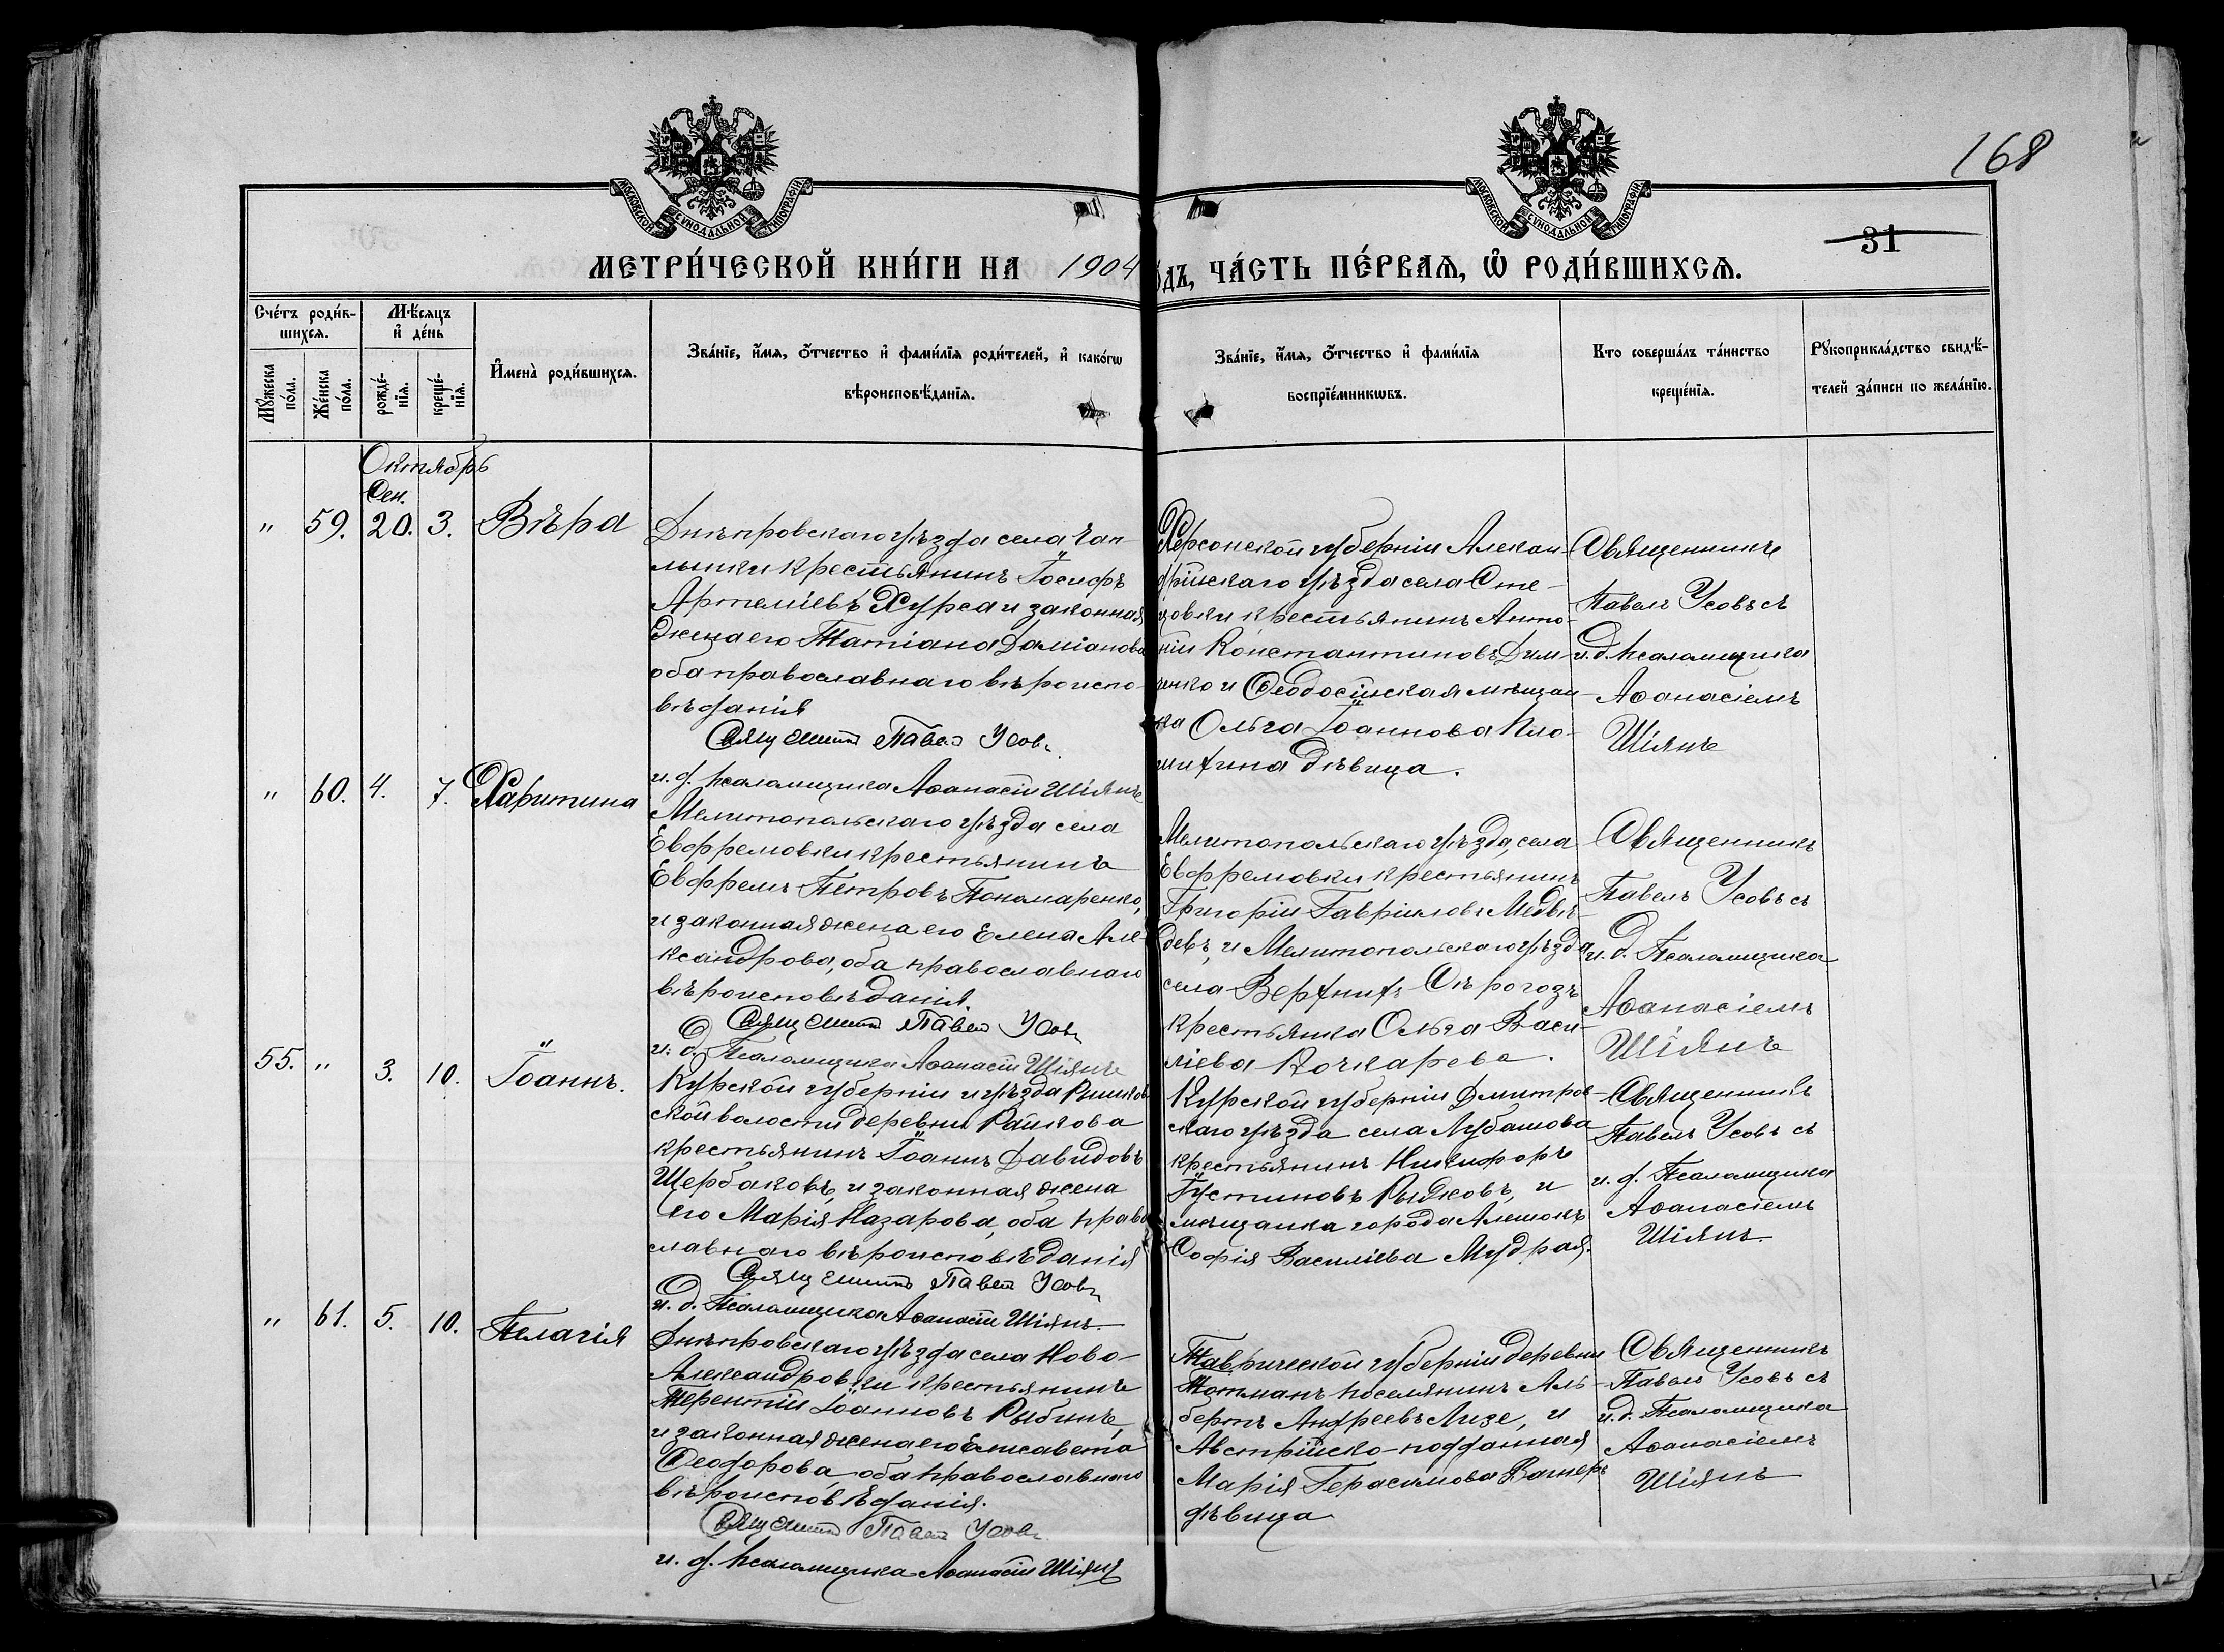 168
31
МОСКОВСКОЙ СѴНОДАЛЬНОЙ ТИПОГРАФІИ
МОСКОВСКОЙ СѴНОДАЛЬНОЙ ТИПОГРАФІИ
МЕТРИ́ЧЕСКОЙ КНИ́ГИ НА 1904
ѻ́дъ, ЧА́СТЬ ПЕ́РВАѦ, Ѡ҆ РОДИ́ВШИХСѦ.
Сче́тъ роди́в-
шихсѧ.
Мѣ́сѧцъ
и҆ де́нь
Мꙋ́жеска
по́ла.
Же́нска
по́ла.
рожде́-
нїѧ.
креще́-
нїѧ.
И҆мена̀ роди́вшихсѧ.
Зва́нїе, и҆́мѧ, ѻ҆́тчество и҆ фамѝлїѧ роди́телей, и҆ како́гѡ
вѣроисповѣ́данїѧ.
Зва́нїе, и҆́мѧ, ѻ҆́тчество и҆ фами́лїѧ
воспрїе́мникѡвъ.
Кто соверша́лъ та́инство
креще́нїѧ.
Рꙋкоприкла́дство свидѣ́-
телей за́писи по жела́нїю.
Октябрь
Сен.
" 59. 20. 3. Вѣра
Днѣпровскаго уѣзда села Чап-
лынки крестьянинъ Іосифъ
Артеміевъ Хурса и законная
жена его Татіана Даміанова
оба православнаго вѣроиспо-
вѣданія
Священникъ Павелъ Усовъ
и. д. псаломщика Аѳанасій Шіянъ
Херсонской губерніи Алексан-
дрійскаго уѣзда села Сте-
цовки крестьянинъ Анто-
ній Константиновъ Дим-
ченко и Ѳеодосійская мѣщан-
ка Ольга Іоаннова Пло-
шихина дѣвица.
Священникъ
Павелъ Усовъ съ
и. д. псаломщика
Аѳанасіемъ
Шіянъ
" 60. 4. 7. Харитина
Мелитопольскаго уѣзда села
Евфремовки крестьянинъ
Евфремъ Петровъ Пономаренко,
и законная жена его Елена Але-
ксандрова, оба православнаго
вѣроисповѣданія.
Священникъ Павелъ Усовъ
и. д. Псаломщика Аѳанасій Шіянъ
Мелитопольскаго уѣзда, села
Евфремовки крестьянинъ
Григорій Гавріиловъ Медвѣ-
девъ, и Мелитопольскаго уѣзда
села Верхнихъ Сѣрогозъ
крестьянка Ольга Васи-
ліева Кочкарева.
Священникъ
Павелъ Усовъ съ
и. д. Псаломщика
Аѳанасіемъ
Шіянъ
55. " 3. 10. Іоаннъ.
Курской губерніи и уѣзда Рышков
ской волости деревни Райкова
крестьянинъ Іоаннъ Давидовъ
Щербаковъ, и законная жена
его Марія Назарова, оба право
славнаго вѣроисповѣданія
Священникъ Павелъ Усовъ
и. д. Псаломщика Аѳанасій Шіянъ.
Курской губерніи Дмитров-
скаго уѣзда села Лубашова
крестьянинъ Никифоръ
Іустиновъ Рыжковъ, и
мѣщанка города Алешокъ
Софія Василіева Мудрая.
Священникъ
Павелъ Усовъ съ
и. д. Псаломщика
Аѳанасіемъ
Шіянъ.
" 61. 5. 10. Пелагія
Днѣпровскаго уѣзда села Ново-
Александровки крестьянинъ
Терентій Іоанновъ Рыбинъ,
и законная жена его Елисавета
Ѳеодорова, оба православнаго
вѣроисповѣданія.
Священникъ Павелъ Усовъ
и. д. псаломщика Аѳанасій Шіянъ
Таврической губерніи деревни
поселянинъ Аль-
бертъ Андреевъ Лизе, и
Австрійско-подданная
Марія Герасимова Вагнеръ
дѣвица
Священникъ
Павелъ Усовъ съ
и. д. Псаломщика
Аѳанасіемъ
Шіянъ